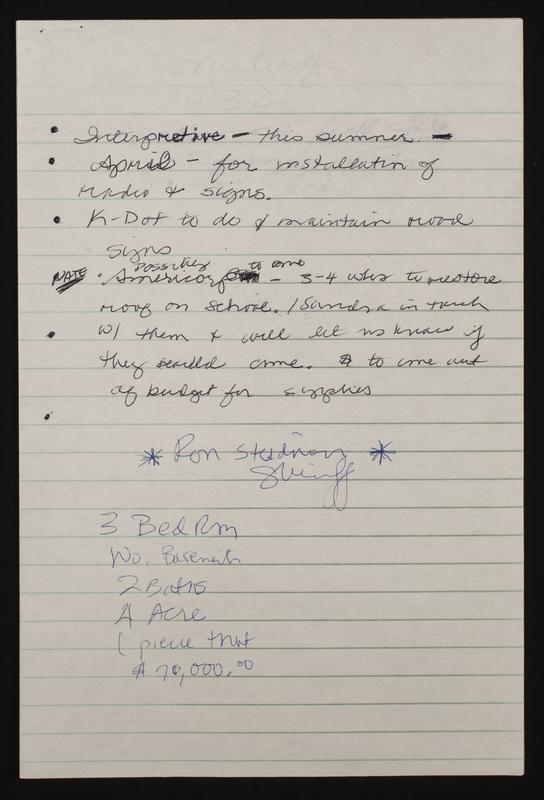 • Interpretive - this summer. -
• April - for installatin of
radio & signs.
• K-Dot to do & maintain road
signs
possibly to come
NATE • Americorp - 3-4 wks to restore
roof on school. / Sandra in touch
• w/ them & will let us know if
they could come. $ to come out
of budget for supplies
•
* Ron Stedman *
Sheriff
3 Bed Rm
No. Basement
2 Baths
4 Acre
1 piece that
$ 70,000.00